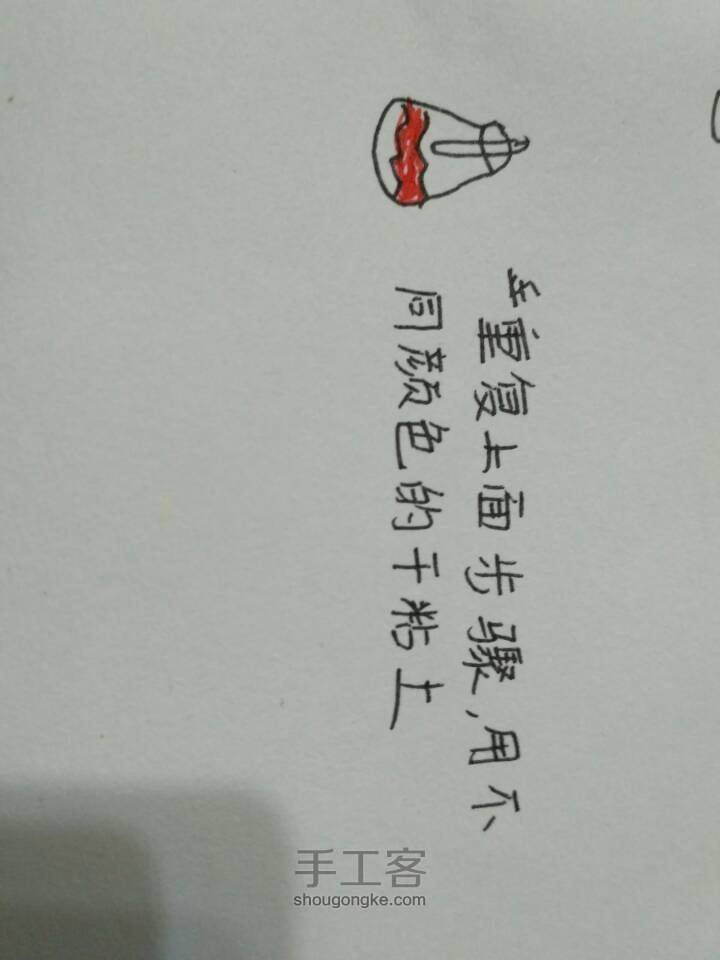 重复上面步骤，用不
同颜色的干粘土
手工客
shougongke.com